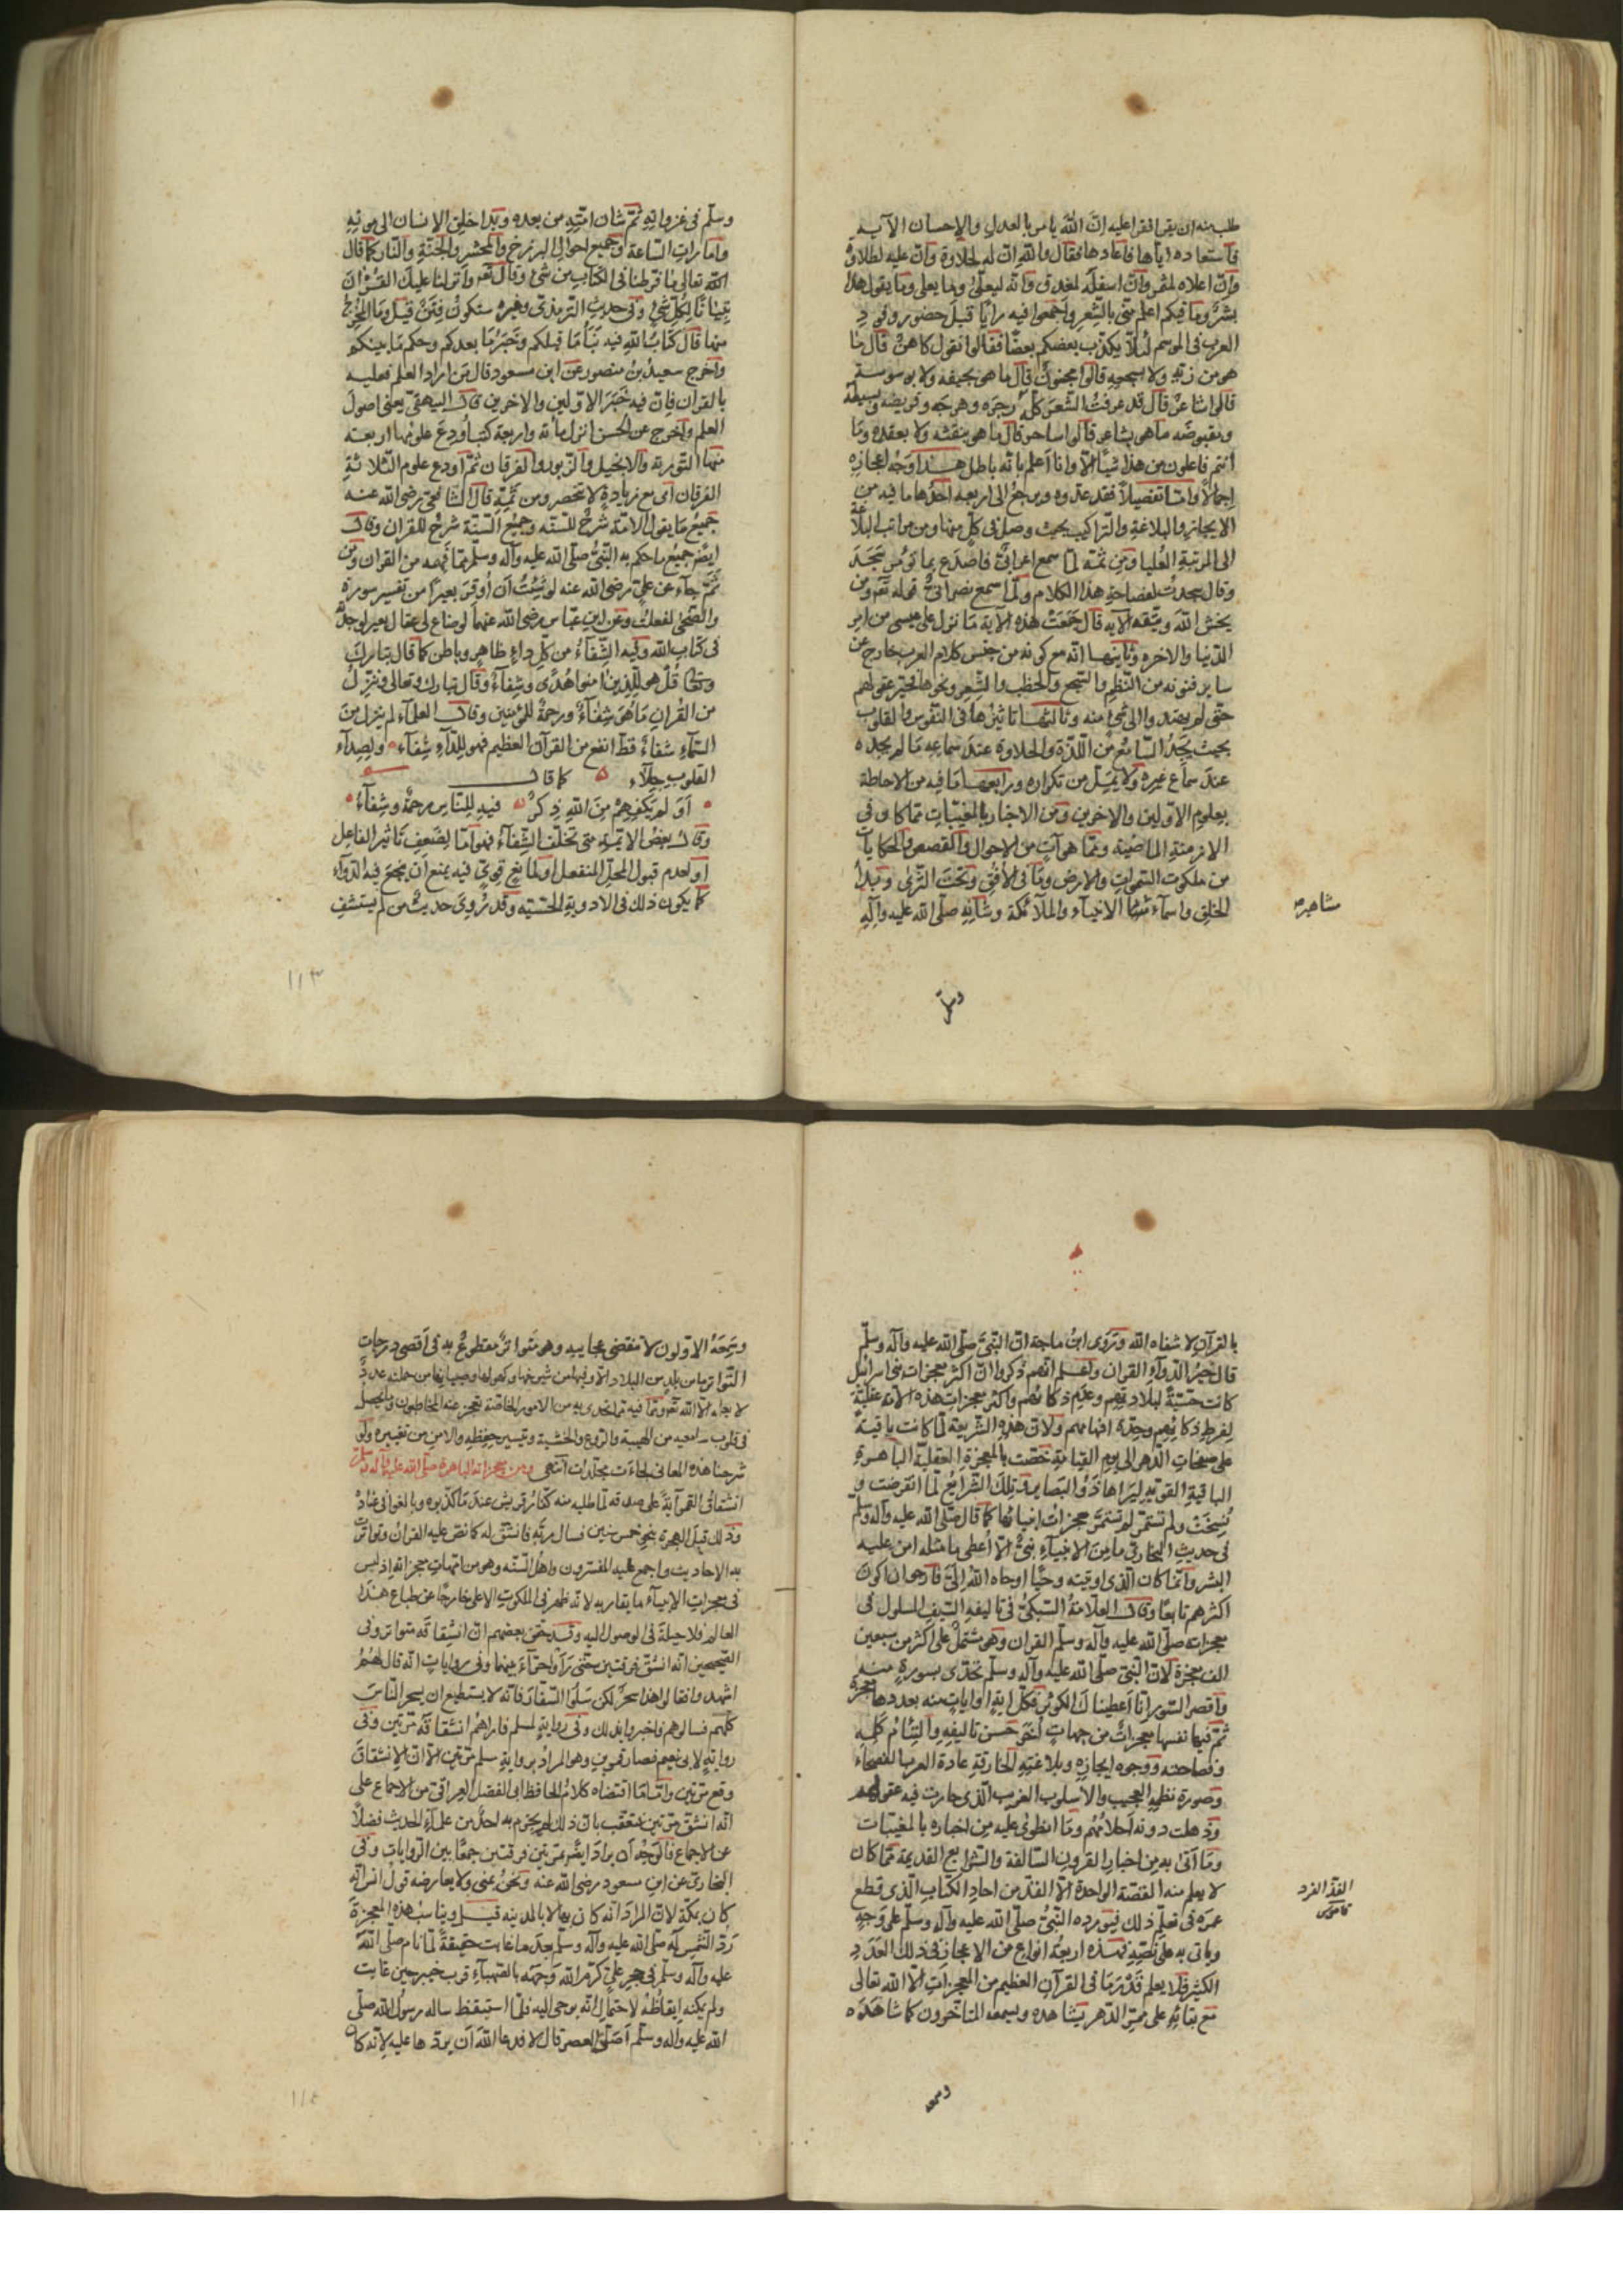 طلب منه ان يقرا فقرا عليه انّ الله يامر بالعدل والاحسان الآية
فاستعاده اياها فاعادها فقال والله انّ له لحلاوة وانّ عليه لطلاوة
وانّ اعلاه لمثمر وانّ اسفله لمغدق وانّه ليعلى وما يعلى وما يقول هذا
بشر وما فيكم اعلم منّي بالشعر واجمعوا فيه رايا قبل حضور وفود
العرب في الموسم لئلّا يكذّب بعضكم بعضًا فقالوا نقول كاهن قال ما
هو من زمته ولا سجعه قالوا مجنون قال ما هو بجيفه ولا بوسوسته
قالوا شاعر قال قد عرفت الشعر كلّه رجزه وهزجه وقريضه وبسيطه
ومقبوضه ما هو بشاعر قالوا ساحر قال ما هو بنفثه ولا بعقده وما
انتم فاعلون من هذا شيأ الّا وانا اعلم بانّه باطل هذا وجه اعجازه
اجمالًا وامّا تفصيلًا فقد عدّوه ويرجع الى اربعه احدها ما فيه من
الايجاز والبلاغة والتراكيب بحيث وصل في كلّ منها ومن مراتب البلاغة
الى المرتبة العليا ومن ثمّة لمّا سمع اعرابيّ فاصدع بما تؤمر سجد
وقال سجدت لفصاحة هذا الكلام ولمّا سمع نصرانيّ قوله تعم ومن
يخش الله ويتّقه الآية قال جمعت هذه الآية ما نزل على عيسى من امر
الدّنيا والاخره وثانيها انّه مع كونه من جنس كلام العرب خارج عن
ساير فنونه من النّظم والسّجع والخطب والشّعر ونحوها فحيّر عقولهم
حتى لم يهتدوا الى شئ منه وثالثها تاثيرها في النّفوس والقلوب
بحيث يجد السّامع من اللّذّة والحلاوة عند سماعه ما لم يجده
عند سماع غيره ولا يملّ من تكراره ورابعها ما فيه من الاحاطة
بعلوم الاوّلين والاخرين ومن الاخبار بالمغيبات ممّا كان في
الازمنة الماضية وممّا هو آت من الاحوال والقصص والحكايات
من ملكوت السّموات والارض وما في الافق وتحت الثّرى وبدأ
الخلق واسمآء الانبيآء والملآئكة وشانه صلّى الله عليه وآله
مشاهير
وسلّم
وسلّم في غزواته ثمّ شان امّته من بعده وبدا خلق الانسان الى موته
وامارات السّاعة وجميع احوال البرزخ والمحشر والجنّة والنّار كما قال
الله تعالى ما فرطنا في الكتاب من شئ وقال تعم وانزلنا عليك القرآن
تبيانًا لكلّ شئ وفي حديث الترمذي وغيره ستكون فتن قيل وما المخرج
منها قال كتاب الله فيه نبأ ما قبلكم وخبر ما بعدكم وحكم ما بينكم
واخرج سعيد بن منصور عن ابن مسعود قال من اراد العلم فعليه
بالقرآن فانّ فيه خبر الاوّلين والاخرين قال البيهقي يعني اصول
العلم واخرج عن الحسن انزل مأئة واربعة كتب اودع علومها اربعة
منها التّورية والانجيل والزّبور والفرقان ثمّ اودع علوم الثّلاثة
الفرقان اى مع زيادة لا تنحصر ومن ثمّة قال الشّافعي رضى الله عنه
جميع ما يقول الامّة شرح للسّنّة وجميع السّنّة شرح للقران وقال
ايضًا جميع ما حكم به النّبي صلّى الله عليه وآله وسلّم ممّا فهمه من القران ومن
ثمّ جآء عن علي رضى الله عنه لو شئت ان أوقر بعيرًا من تفسير سورة
والضّحى لفعلت وعن ابن عبّاس رضى الله عنهما لو ضاع لى عقال بعير لوجدته
في كتاب الله وفيه الشّفآء من كلّ داء ظاهر وباطن كما قال تبارك
وتعالى قل هو للّذين امنوا هدًى وشفآءٌ وقال تبارك وتعالى وننزّل
من القران ما هو شفآءٌ ورحمة للمؤمنين وقال العلمآء لم ينزل من
السّمآء شفاءٌ قط انفع من القرآن العظيم فهو للدّآء شفآء ولصدآء
القلوب جلآء كما قال
اولم يكفهم من الله ذكر فيه للنّاس رحمةٌ وشفآءٌ
وقال بعض الائمة متى تخلّف الشّفآء فهو امّا لضعف تاثير الفاعل
او لعدم قبول المحلّ المنفعل او لمانع قويّ فيه يمنع ان ينجع فيه الدّوآء
كما يكون ذلك في الادوية الحسّية وقد روى حديث من لم يستشف
١١٣
بالقرآن لا شفاه الله وروى ابن ماجة انّ النّبي صلّى الله عليه وآله وسلّم
قال خير الدّوآء القران واعلم انهم ذكروا انّ اكثر معجزات بني اسرائيل
كانت حسّيّةً لبلادتهم وعدم ذكائهم واكثر معجزات هذه الامّة عقليّة
لفرط ذكائهم وحدة افهامهم ولانّ هذه الشّريعة لمّا كانت باقية
على صفحات الدّهر الى يوم القيامة خصّت بالمعجزة العقليّة الباهرة
الباقية القويّة ليراها ذوو البصاير فتلك الشّرايع لمّا انقرضت و
نسخت ولم تستمرّ لم تستمرّ معجزات انبيائها كما قال صلّى الله عليه وآله وسلّم
في حديث البخاري ما من الانبيآء نبيّ الّا أعطى ما مثله امن عليه
البشر وانّما كان الّذي اوتيته وحيًا اوحاه الله اليّ فارجو ان اكون
اكثرهم تابعًا وقال العلّامة السّبكي في تاليفه السّيف المسلول في
معجزاته صلّى الله عليه وآله وسلّم القران وهو مشتمل على اكثر من سبعين
الف معجزة لانّ النّبي صلّى الله عليه وآله وسلّم تحدّى بسورة منه
واقصر السّور انّا اعطيناك الكوثر فكلّ اية او ايات منه بعددها معجزة
ثمّ فيها نفسها معجزات من جهات أخر حسن تاليفه والتئام كلمه
وفصاحته ووجوه ايجازه وبلاغته الخارقة عادة العرب الفصحاء
وصورة نظمه العجيب والاسلوب الغريب الّذي حارت فيه عقولهم
وذهلت دونه احلامهم وما انطوى عليه من اخباره بالمغيبات
وما اتى به من اخبار القرون السّالفة والشّرايع القديمة ممّا كان
لا يعلم منه القصّة الواحدة الّا الفذّ من احاد الكتاب الّذي قطع
عمره في تعلّم ذلك فيورده النّبي صلّى الله عليه وآله وسلّم على وجهه
وياتى به على نصّه فهذه اربعة انواع من الاعجاز في ذلك العدد
الكثير فلا يعلم قدر ما في القرآن العظيم من المعجزات الّا الله تعالى
مع بقائه على ممرّ الدّهر يشاهده ويسمعه المتاخّرون كما شاهده
الفذّ الفرد
قاموس
وسمعه
وسمعه الاوّلون لا تنقضى عجايبه وهو متواتر مقطوع به في اقصى درجات
التّواتر ما من بلد من البلاد الّا وفيها من شيوخها وكهولها وصبيانها من حملته عدد
لا يعلمه الّا الله تعم وما فيه تمّ التحدى به من الامور الخاصّة يعجز عنه المخاطبون وما يحصل
في قلوب سامعيه من الهيبة والرّوع والخشية وتيسير حفظه والامن من تغييره ولو
شرحنا هذه المعاني لجاءت مجلّدات انتهى ومن معجزاته الباهرة صلّى الله عليه وآله وسلّم
انشقاق القمر آيةً على صدقه لمّا طلبه منه كفّار قريش عند ما كذّبوه وبالغوا في عناده
وذلك قبل الهجرة بنحو خمس سنين فسال ربّه فانشقّ له كما نصّ عليه القران وتواترت
به الاحاديث واجمع عليه المفسّرون واهل السّنّة وهو من امّهات معجزاته اذ ليس
في معجزات الانبيآء ما يقاربه لانّه ظهر في الملكوت الاعلى خارجًا عن طباع هذا
العالم فلا حيلة في الوصول اليه وقد حقّق بعضهم انّ انشقاقه متواتر وفي
الصّحيحين انّه انشقّ فرقتين حتّى رأوا حرآء بينهما وفي روايات انّه قال لهم
اشهدوا فقالوا هذا سحر لكن سلوا السّفّار فانّه لا يستطيع ان يسحر النّاس
كلّهم فسالوهم واخبروا بذلك وفي رواية لمسلم فاراهم انشقاقه مرّتين وفي
رواية لابى نعيم فصار قمرين وهو المراد برواية مسلم مرّتين الّا انّ الانشقاق
وقع مرّتين وامّا ما اقتضاه كلام الحافظ ابى الفضل العراقي من الاجماع على
انّه انشقّ مرّتين فتعقّب بانّ ذلك لم يجزم به احد من علمآء الحديث فضلًا
عن الاجماع فالوجه ان يراد ايضًا بمرّتين فرقتين جمعًا بين الرّوايات وفي
البخاري عن ابن مسعود رضى الله عنه ونحن بمنى ولا يعارضه قول انس انّه
كان بمكّة لانّ المراد انه كان بها لا بالمدينه قبل ويناسب هذه المعجزة
ردّ الشّمس له صلّى الله عليه وآله وسلّم بعد ما غابت حقيقةً لمّا نام صلّى الله
عليه وآله وسلّم في حجر علي كرّم الله وجهه بالصّهبآء قرب خيبر حين غابت
ولم يمكنه ايقاظه لاحتمال انّه يوحى اليه فلمّا استيقظ ساله رسول الله صلّى
الله عليه وآله وسلّم أصلّيت العصر قال لا فدعا الله ان يردّها عليه لانّه كان
١١٤